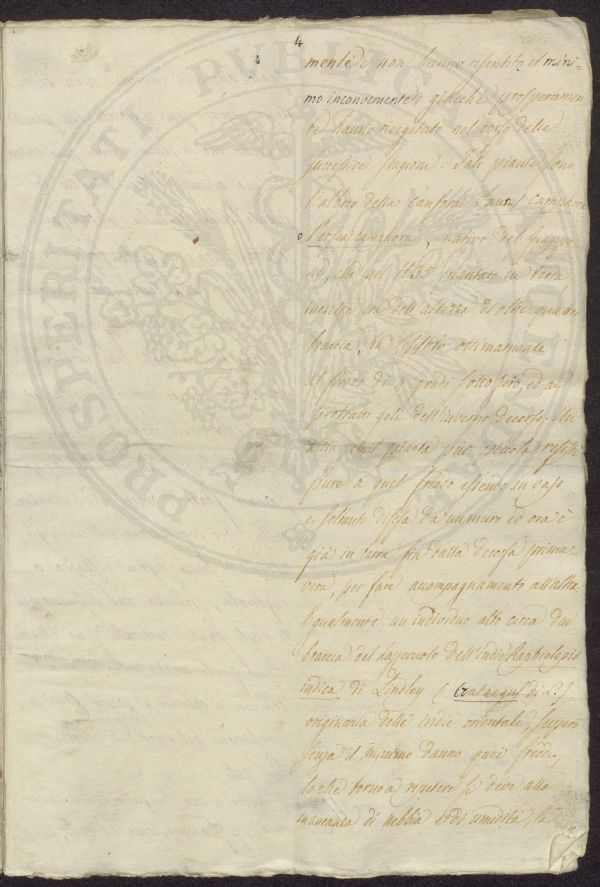 4
mente e non hanno risentito il mini-
mo inconveniente, giacchè prosperamen
te hanno vegetato nel corso delle
successive stagioni. Tali piante sono
l'albero della canfora Laurus camphora
o Persea camphora, nativo del Giappo
ne, che nel 1835 piantato in terra
mentre era dell'altezza di oltre quattro
braccia, ha resistito ottimamente
al freddo di 9 gradi sotto zero, ed ai
protratti geli dell'inverno decorso.
altra simil pianta più piccola resiste
pure a quel freddo essendo in vaso
e soltanto difesa da un muro ed ora è
già in terra fin dalla decorsa prima-
vera, per fare accompagnamento all'altra
Egualmente un individuo alto circa due
braccia del dell'Indie Raphiolepis
indica di Lindley (Crataegus di L.)
originaria delle Indie orientali,
senza il minimo danno quei freddi,
lo che torno a ripetere si deve alla
mancanza di nebbia e di umidità, la
PROSPERITATI PUBLICAE